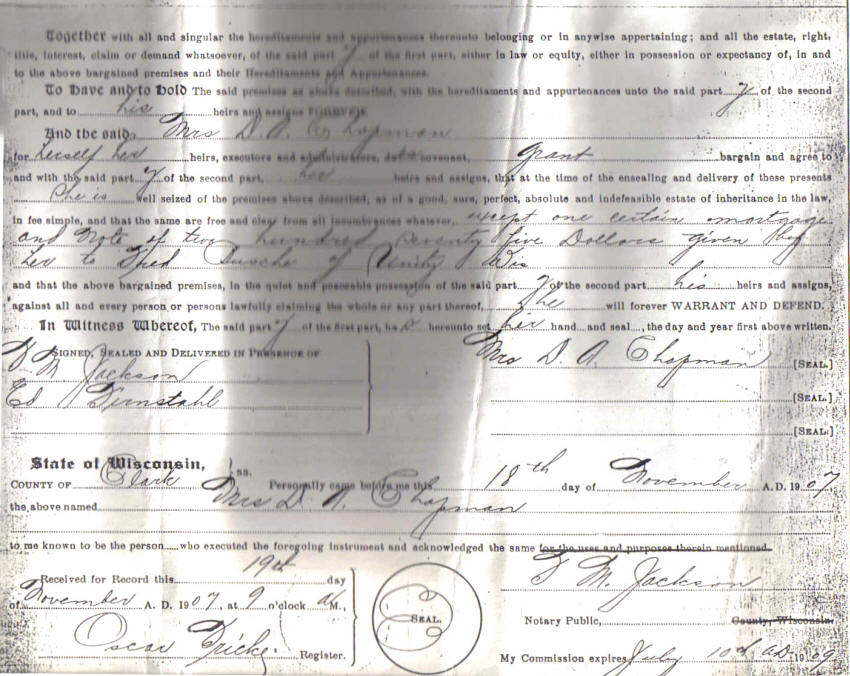 Together with all and singular the hereditaments and appurtenances thereunto belonging or in anywise appertaining; and all the estate, right,
title, interest, claim or demand whatsoever, of the said part y of the first part, either in law or equity, either in possession or expectancy of, in and
to the above bargained premises and their Hereditaments and Appurtenances.
To Have and to Hold The said premises as above described, with the hereditaments and appurtenances unto the said part y of the second
part, and to his heirs and assigns FOREVER.
And the said Mrs D. A. Chapman
for herself her heirs, executors and administrators, do covenant, grant bargain and agree to
and with the said part y of the second part, her heirs and assigns, that at the time of the ensealing and delivery of these presents
She is well seized of the premises above described, as of a good, sure, perfect, absolute and indefeasible estate of inheritance in the law,
in fee simple, and that the same are free and clear from all incumbrances whatever, except one certain mortgage
and Note of two hundred seventy five Dollars given by
her to of Unity Wis
and that the above bargained premises, in the quiet and peaceable possession of the said part y of the second part his heirs and assigns,
against all and every person or persons lawfully claiming the whole or any part thereof, She will forever WARRANT AND DEFEND.
In Witness Whereof, The said part y of the first part, ha s hereunto set her hand and seal, the day and year first above written.
SIGNED, SEALED AND DELIVERED IN PRESENCE OF
Mrs D. A. Chapman [SEAL.]
M. Jackson
Ed [SEAL.]
[SEAL.]
State of Wisconsin,
COUNTY OF Clark ss. Personally came before me this 18th day of November A. D. 1907,
the above named Mrs D. A. Chapman
to me known to be the person who executed the foregoing instrument and acknowledged the same for the uses and purposes therein mentioned.
Received for Record this 19th day
of November A. D. 1907, at 9 o'clock A M.,
Oscar Register.
SEAL.
M. Jackson
Notary Public, County, Wisconsin.
My Commission expires July 10th AD 1909